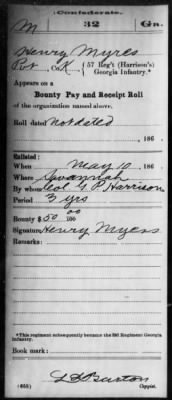 Confederate.
M 32 Ga.
Henry Myres
Pvt, Co. K, 57 Reg't (Harrison's)
Georgia Infantry.*
Appears on a
Bounty Pay and Receipt Roll
of the organization named above.
Roll dated Not dated
, 186
Enlisted:
When May 10, 186 .
Where Savannah
By whom Col. G P Harrison
Period 3 yrs
Bounty $50 00/100
Signature Henry Myers
Remarks:
*This regiment subsequently became the 32d Regiment Georgia
Infantry.
Book mark:
Burton
Copyist.